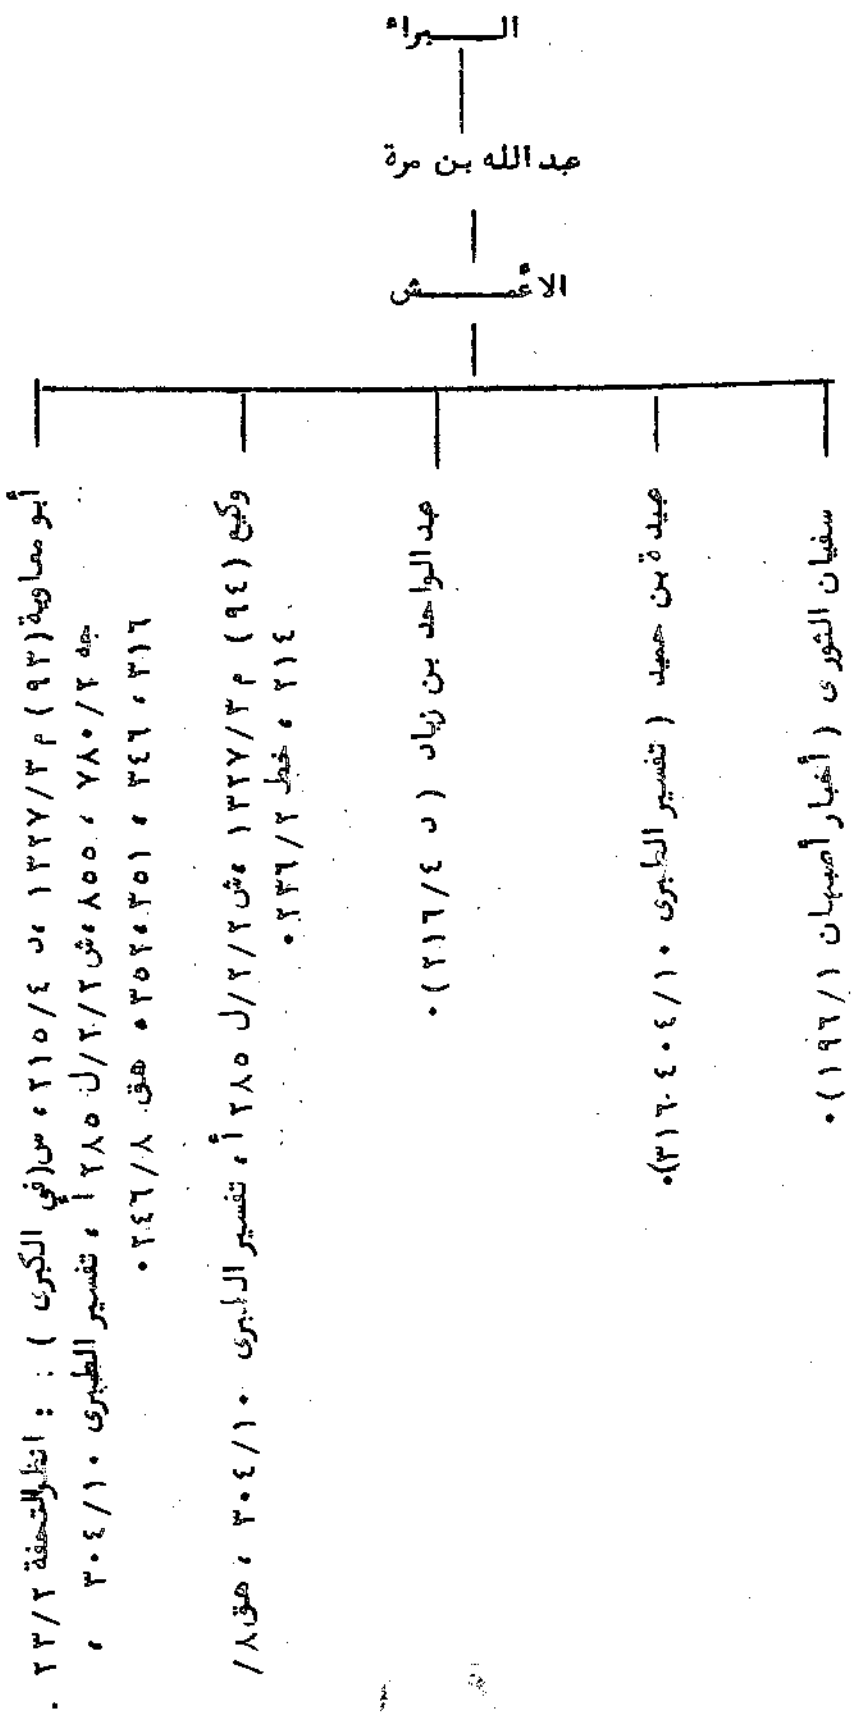 البراء
عبد الله بن مرة
الأعمش
سفيان الثورى ( أخبار أصبهان ١/١٩٦) ٠
عبيدة بن حميد ( تفسير الطبرى ١٠/٣٠٤ ، ٣١٦)٠
عبد الواحد بن زياد ( د ٤/٢١٦) ٠
وكيع (٩٤) م ٣/١٣٢٧ ،ش ٢/٢/ل ٢٨٥ أ، تفسير الطبرى ١٠/٣٠٤ ، هق ٨/
٢١٤ ، خط ٢/٢٣٦ ٠
أبو معاوية (٩٣) م ٣/١٣٢٧ ،د ٤/٢١٥ ، س(في الكبرى ) : : انظر التحفة ٢/٢٣ ٠
جه ٢/٧٨٠ ، ٨٥٥ ،ش ٢/٢/ل ٢٨٥ أ ، تفسير الطبرى ١٠/٣٠٤ ،
٣١٦ ، ٣٤٦ ، ٣٥١ ،٣٥٢ ، هق ٨/٢٤٦ ٠